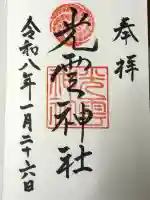 奉拝
光雲神社
令和八年一月二十六日